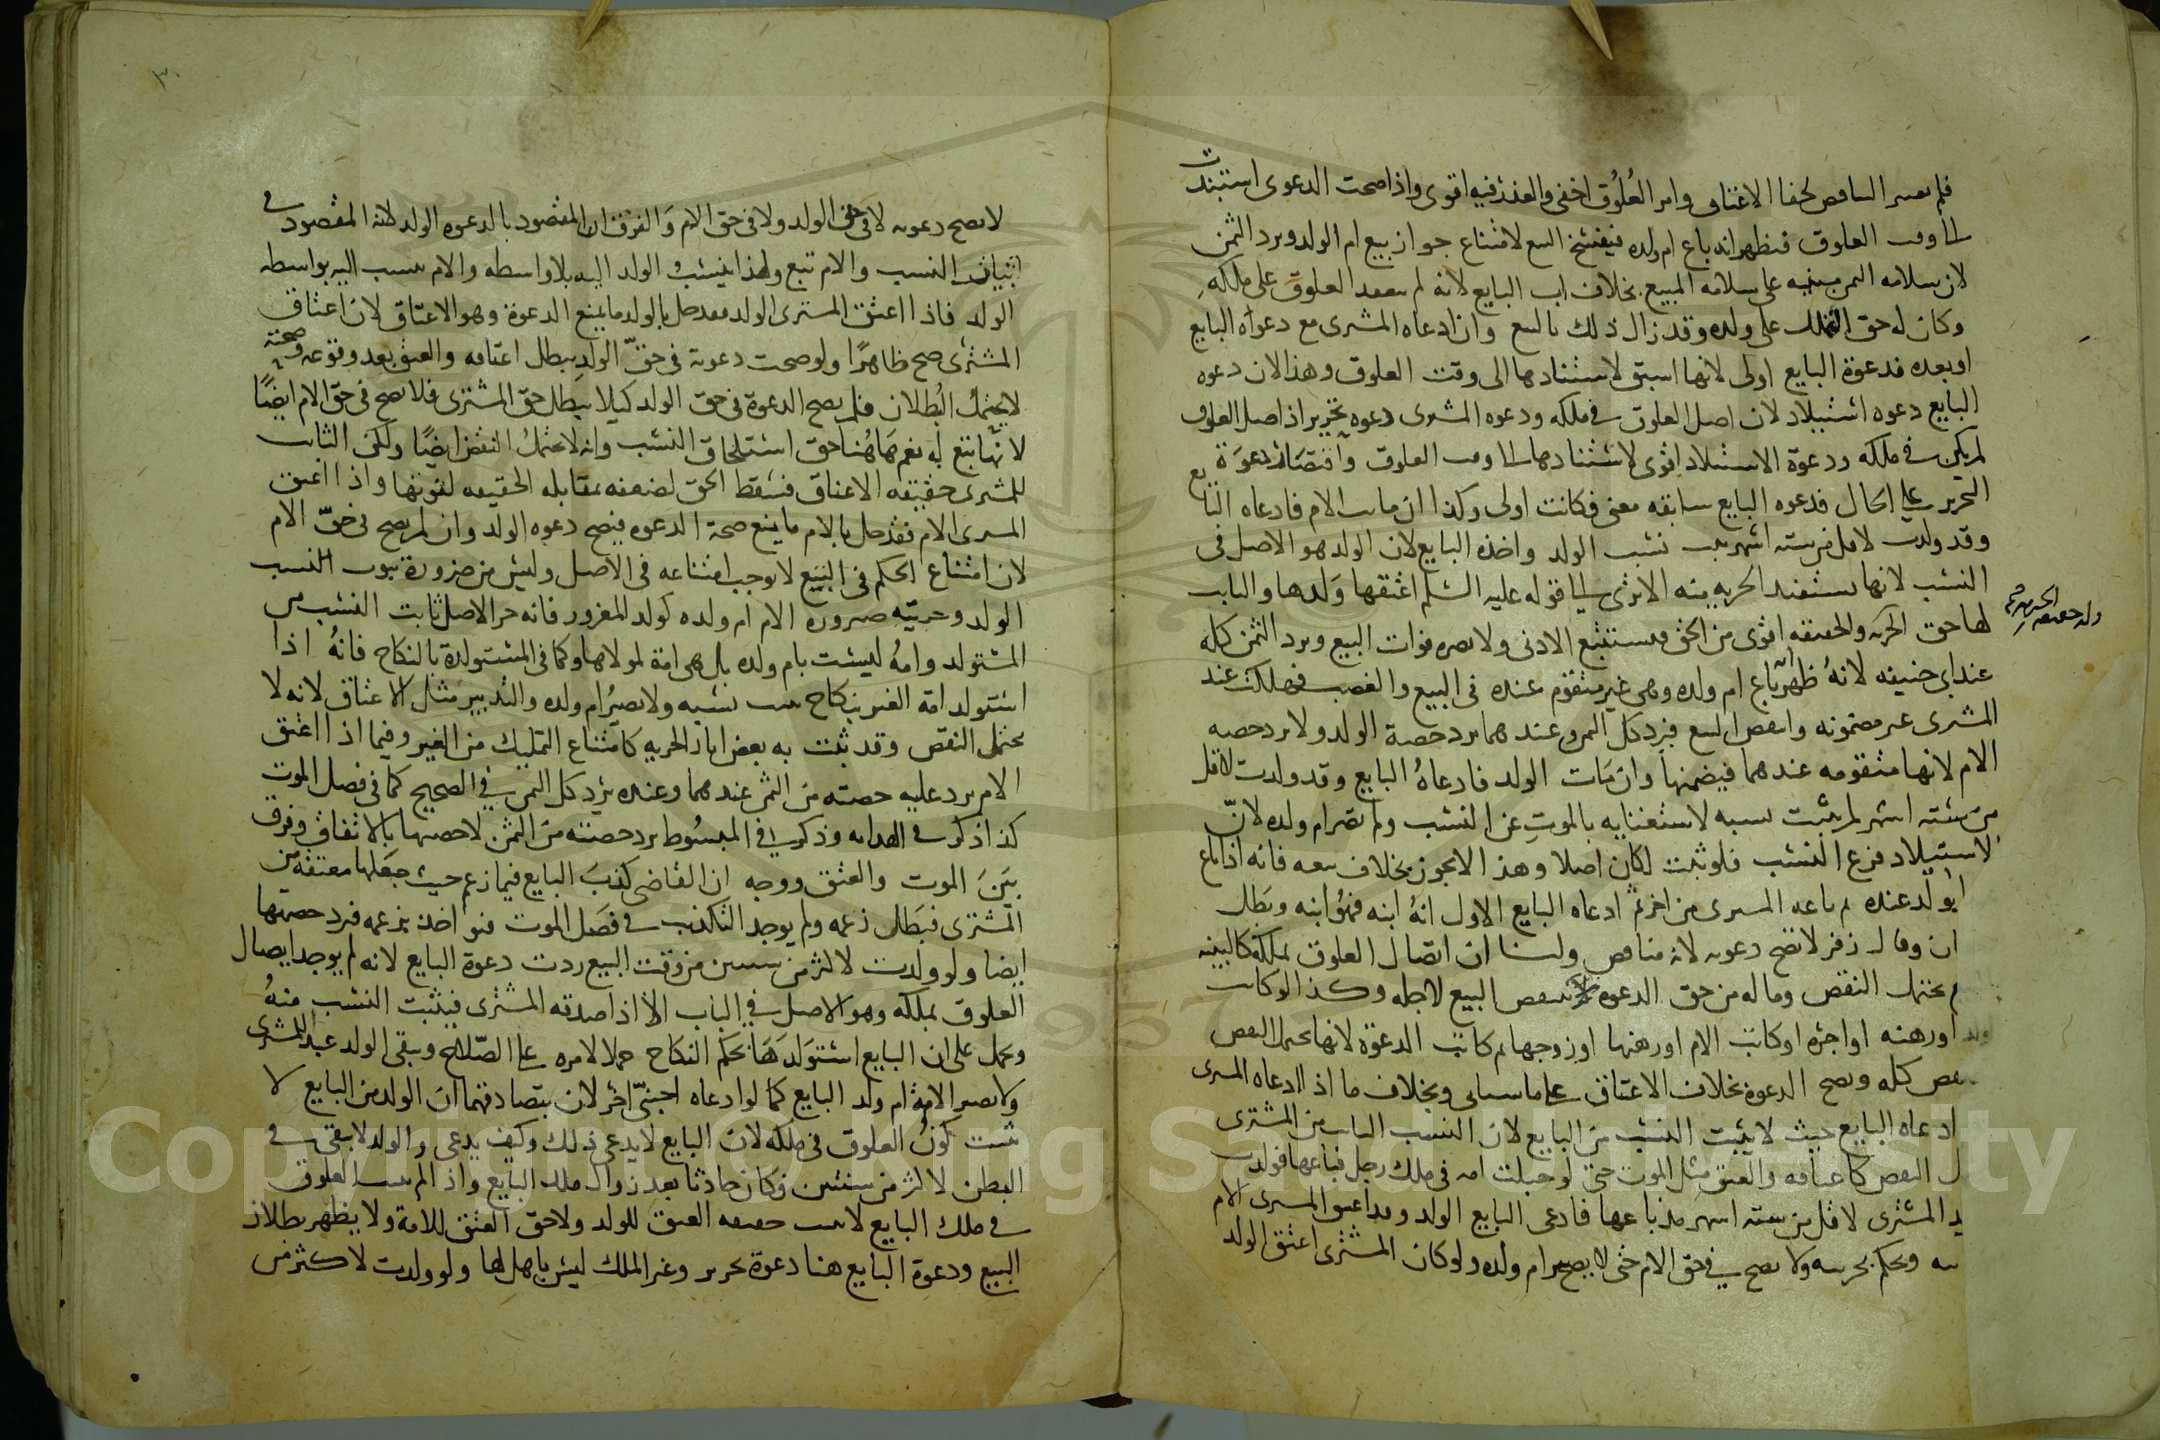 فلم يعتبر التناقص لخفا الاعتاق وامر العُلُوق اخفى والعذر فيه اقوى واذا صحت الدعوى استندت
الى وقت العلوق فيظهر انه باع ام ولده فيفسخ البيع لامتناع جواز بيع ام الولد ويرد الثمن
لان سلامه الثمن مبنيه على سلامه المبيع بخلاف اب البايع لانه لم ينعقد العلوق على ملكه
وكان له حق التملك على ولده وقد زال ذلك بالبيع وان ادعاه المشترى مع دعواه البايع
او بعده فدعوة البايع اولى لانها اسبق لاستنادها الى وقت العلوق وهذا لان دعوه
البايع دعوه استيلاد لان اصل العلوق في ملكه ودعوه المشترى دعوه تحرير اذ اصل العلوق
لم يكن في ملكه ودعوة الاستيلاد اقوى لاستنادها الى وقت العلوق واقتصار دعوة
التحرير على الحال فدعوه البايع سابقه معنى فكانت اولى وكذا ان ماتت الام فادعاه البايع
وقد ولدت لاقل من سته اشهر يثبت نسب الولد واخذه البايع لان الولد هو الاصل في
النسب لانها تستفيد الحريه منه الا ترى الى قوله عليه السلم اعتقها ولدها والثابت
لها حق الحريه والحقيقه اقوى من الحق فيستتبع الادنى ولا يضره فوات البيع ويرد الثمن كله
عند ابى حنيفه لانهُ ظهر انه باع ام ولده وهى غير متقوم عنده فى البيع والغصب فهلكت عند
المشترى غير مضمونه وانتقص البيع فيرد كل الثمن وعندهما يرد حصة الولد ولا يرد حصه
الام لانها متقومه عندهما فيضمنها وان مات الولد فادعاهُ البايع وقد ولدت لاقل
من سته اشهر لم يثبت نسبه لاستغنايه بالموت عن النسب ولم تصر ام ولده لانّ
الاستيلاد فرع النسب فلو ثبت لكان اصلا وهذا لا يجوز بخلاف بيعه فانه اذا باع
ولد عنده ثم باعه المشترى من اخر ثم ادعاه البايع الاول انهُ ابنه فهوُ ابنه وبطل
ان وقال زفر لا تصح دعوته لانه مناقض ولنا ان اتصال العلوق بملكه كالبينه
يحتمل النقض وماله من حق الدعوه لا ينتقض البيع لاجله وكذا لو كاتب
او رهنه او اجره او كاتب الام او رهنها او زوجها ثم كانت الدعوة لانها تحتمل النقض
كله وتصح الدعوة بخلاف الاعتاق على ما سياتى وبخلاف ما اذا ادعاه المشترى
ادعاه البايع حيث لا يثبت النسب من البايع لان النسب الثابت من المشترى
النقض كاعتاقه والعتق مثل الموت حتى لو حبلت امه فى ملك رجل فباعها فولدت
المشترى لاقل من سته اشهر مذ باعها فادعى البايع الولد وقد اعتق المشترى الام
ويحكم بحريته ولا تصح في حق الام حتى لا يصير ام ولده ولو كان المشترى اعتق الولد
لا تصح دعوته لا في حق الولد ولا في حق الام وَالفرق ان المقصود بالدعوه الولد لانه المقصود في
اثبات النسب والام تبع ولهذا ينسب الولد اليه بلا واسطه والام تنسب اليه بواسطه
الولد فاذا اعتق المشترى الولد فقد حل بالولد ما يمنع الدعوة وهو الاعتاق لان اعتاق
المشترى صح ظاهرًا ولو صحت دعوته فى حقّ الولد يبطل اعتاقه والعتق بعد وقوعه وصحته
لا يحتمل البُطلان فلم يصح الدعوة فى حق الولد كيلا يبطل حق المشترى فلا تصح فى حق الام ايضًا
لانها تبع له نعم هَاهُنا حق استلحاق النسب وانه لا يحتمل النقض ايضًا ولكن الثابت
للمشترى حقيقه الاعتاق فسقط الحق لضعفه بمقابله الحقيقه لقوتها واذا اعتق
المشترى الام فقد حل بالام ما يمنع صحة الدعوه فيصح دعوه الولد وان لم يصح فى حقّ الام
لان امتناع الحكم فى التبع لا يوجب امتناعه فى الاصل وليس من ضرورة ثبوت النسب
الولد وحريته صيروره الام ام ولده كولد المغرور فانه حر الاصل ثابت النسب من
المستولد وامهُ ليست بام ولده بل هى امة لمولاها وكما فى المستولدة بالنكاح فانهُ اذا
استولد امة الغير بنكاح يثبت نسبه ولا تصير ام ولده والتدبير مثل الاعتاق لانه لا
يحتمل النقض وقد ثبت به بعض اثار الحريه كامتناع التمليك من الغير وفيما اذا اعتق
الام يرد عليه حصته من الثمن عندهما وعنده يرد كل الثمن في الصحيح كما فى فصل الموت
كذا ذكر فى الهدايه وذكر في المبسُوط يرد حصته من الثمن لا حصتها بالاتفاق وفرق
بيَنَ الموت والعتق ووجه ان القاضى كذب البايع فيما زعم حيث جعَلها معتقه من
المشترى فبَطل زعمه ولم يوجد التكذيب في فصَل الموت فيواخذ بزعمه فيرد حصتها
ايضا ولو ولدت لاكثر من سنتين من وقت البيع ردت دعوة البايع لانه لم يوجد اتصال
العلوق بملكه وهو الاصل في الباب الا اذا صدقه المشترى فيثبت النسب منهُ
ويحمل على ان البايع استوَلدَهَا بحكم النكاح حملا لامره على الصّلاح ويبقى الولد عبد المشترى
ولا تصير الامة ام ولد البايع كما لو ادعاه اجنبىّ اخر لان بتصادقهما انّ الولد من البايع لا
يثبت كونُ العلوق فى ملكه لان البايع لا يدعى ذلك وكيف يدعى والولد لا يبقى في
البطن لاكثر من سنتين فكان حادثا بعد زوال ملك البايع واذا لم يثبت العلوق
في ملك البايع لا يثبت حقيقه العتق للولد ولا حق العتق للامة ولا يظهر بطلان
البيع ودعوة البايع هنا دعوة تحرير وغير الملك ليس باهل لها ولو ولدت لاكثر من
Copyright © King Saud University
1957